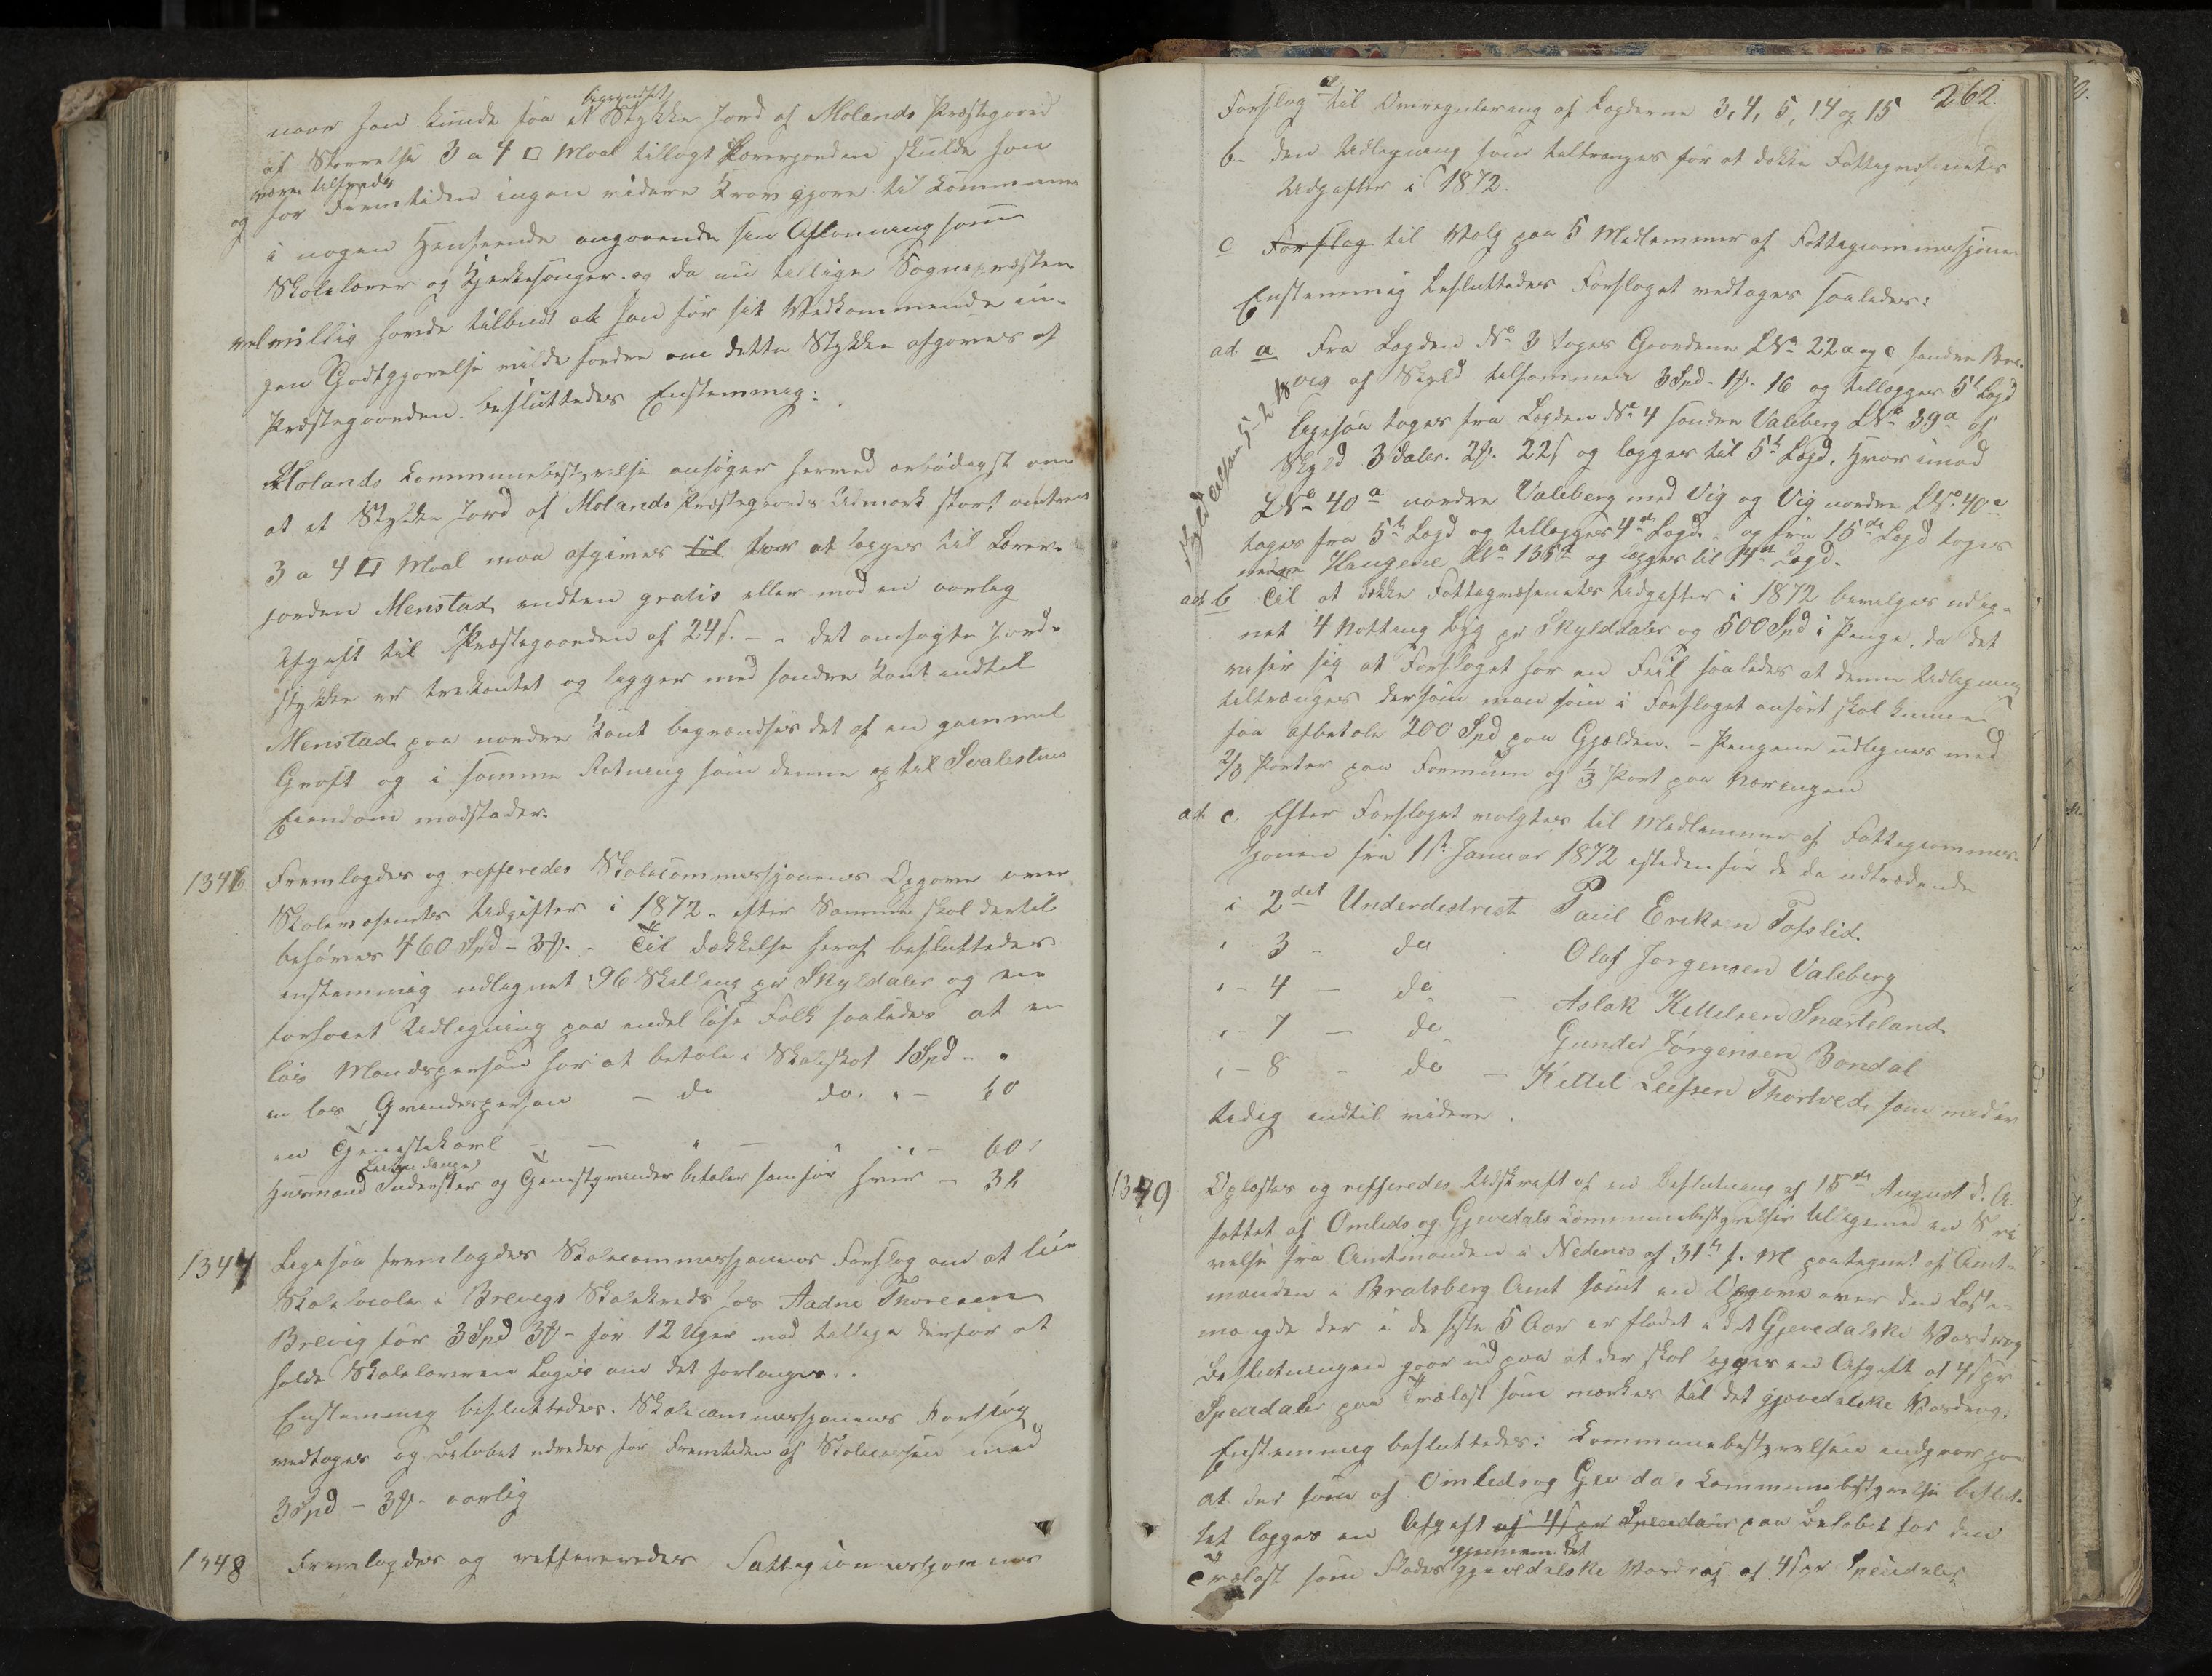 naar han kunde faa et begrændset Stykke Jord af Molands Præstegaard
af Størrelse 3 a 4 □ Maal tillagt Lærerjorden skulde han
være tilfreds
og for Fremtiden ingen videre Krav gjøre til Kommunen
i nogen Henseende angaaende sin Aflønning som
Skolelærer og Kjerkesanger. og da nu tillige Sognepræsten
velvillig havde tilbudt at han for sit Vedkommende in-
gen Godtgjørelse vilde fordre om dette Stykke afgaves af
Præstegaarden. besluttedes Enstemmig:
Molands Kommunebestyrelse ansøger herved ærbødigst om
at et Stykke Jord af Molands Præstegaards Udmark stort omtrent
3 a 4 □ Maal maa afgives til for at lægges til Lærer-
jorden Menstad, endten gratis eller mod en aarlig
Afgift til Præstegaarden af 24 s. - det ansøgte Jord-
stykke er trekantet og ligger med søndre Kant indtil
Menstad, paa nordre Kant begrændses det af en gammel
Grøft og i samme Retning som denne op til Svalestuen
Eiendom modstøder.
1346 Fremlagdes og refferedes Skolecommissjonens Opgave over
Skolevæsenets Udgifter i 1872. efter Samme skal dertil
behøves 460 Spd - 3 #. - Til Dækkelse heraf besluttedes
enstemmig udlignet 96 Skilling pr Skyldaler og en
forhøiet Udligning paa endel løse Folk saaledes at en
løs Mandsperson har at betale i Skoleskat 1 Spd - "
en løs Qvindesperson - do do. " - 60
en Tjenestekarl - - " - " " - 60
Husmand Inderster og Tjenestqvinder betaler hanfør hver - 32
1347 Ligesaa fremlagdes Skolecommissjonens Forslag om at leie
Skolelocale i Brevigs Skolekreds hos Aadne Thoresen
Brevig for 3 Spd 3 # - for 12 Uger mod tillige derfor at
holde Skolelæreren Logie om det forlanges..
Enstemmig besluttedes. Skolecommissjonens Forslag
vedtages og Beløbet udredes for Fremtiden af Skolecassen med
3 Spd - 3 #. aarlig
1348 Fremlagdes og reffereredes Fattigcommissjonens
262.
Forslag a til Omregulering af Lægderne 3, 4, 5, 14 og 15
b- den Udligning som tiltrænges for at dække Fattigvæsenets
Udgifter i 1872.
c Forslag til Valg paa 5 Medlemmer af Fattigcommissjonen
Enstemmig besluttedes Forslaget vedtages saaledes:
ad a Fra Lægden No 3 toges Gaardene LNo 22a og c søndre Bre-
vig af Skyld tilsammen 3 Spd - 1 #. - 16 og tillægges 5te Lægd
ligesaa toges fra Lægden No 4 søndre Valeberg LNo 39a af
Skyld 3 Daler. 2 #. 22 s og lægges til 5te Lægd. Hvorimod
LNo 40a nordre Valeberg med Vig og Vig nordre LNo 40c
toges fra 5te Lægd og tillægges 4de Lægd. - og fra 15de Lægd toges
nedre Haugene LNo 135a og lægges til 14de Lægd.
ad b Til at dække Fattigvæsenets Udgifter i 1872 bevilges udlig-
net 4 Kotting Byg pr Skylddaler og 500 Spd i Penge, da det
viser sig at Forslaget har en Feil saaledes at denne Udligning
tiltrænges dersom man som i Forslaget anført skal kunne
faa afbetale 200 Spd paa Gjælden. - Pengene udlignes med
2/3 Parter paa Formuen og 1/3 Part paa Næringen
ad c Efter Forslaget valgtes til Medlemmer af Fattigcommis-
sjonen fra 1ste Januar 1872 istedenfor de da udtrædende
i 2det Underdistrict Paul Eriksen Tofslid.
" 3 - do - Olaf Jørgensen Valeberg
" - 4 - do - Aslak Kittelsen Snarteland
" - 7 - do Gunder Jørgensen Bondal
" - 8 - do - Kittel Leifsen Thortved, som meder
tidig indtil videre.
1349 Oplæstes og refferedes Udskrift af en Beslutning af 15de August d. A.
fattet af Omlids og Gjøvdals Kommunebestyrelser tilligemed en Skri
velse fra Amtmanden i Nedenes af 31te f. M paategnet af Amt-
manden i Bratsberg Amt samt en Opgave over den Laste-
mængde der i de sidste 5 Aar er flødet i det Gjevedalske Vasdrag
Beslutningen gaar ud paa at der skal lægges en Afgift af 4 s pr
Speciedaler paa Trælast som mærkes til det gjøvedalske Vasdrag.
Enstemmig besluttedes: Kommunebestyrelsen indgaar paa
at der som af Omlids og Gjevdals Kommunebestyrelse beslut-
tet lægges en Afgift af 4 s pr Speciedaler paa Beløbet for den
gjennem det
Trælast som flødes gjevedalske Vasdrag af 4 s pr Speciedaler